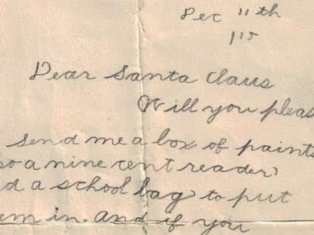 Dec 11th
Dear Santa Claus
Will you pleas
send me a box of paints
so a nine cent reader
d a school bag to put
em in. and if you